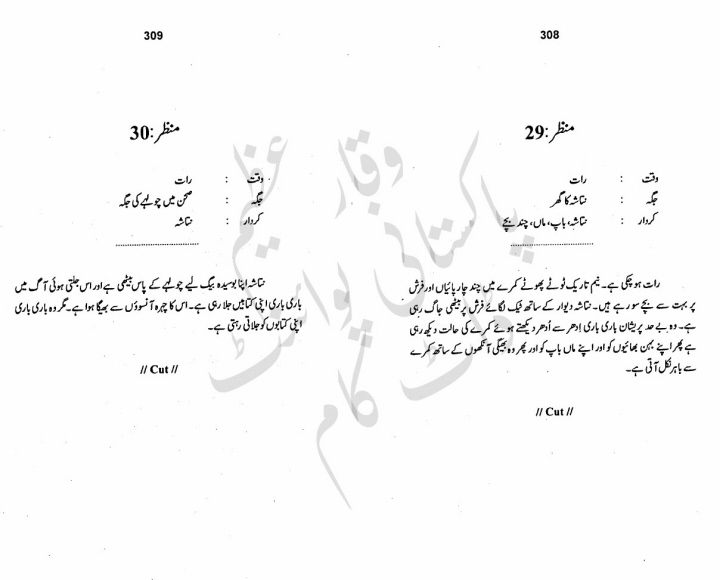 308
منظر:29
وقت : رات
جگہ : نتاشہ کا گھر
کردار : نتاشہ، باپ، ماں، چند بچے
رات ہو چکی ہے۔ نیم تاریک ٹوٹے پھوٹے کمرے میں چند چارپائیاں اور فرش
پر بہت سے بچے سو رہے ہیں۔ نتاشہ دیوار کے ساتھ ٹیک لگائے فرش پر بیٹھی جاگ رہی
ہے۔ وہ بے حد پریشان باری باری اِدھر سے اُدھر دیکھتے ہوئے کمرے کی حالت دیکھ رہی
ہے پھر اپنے بہن بھائیوں کو اور اپنے ماں باپ کو اور پھر وہ بھیگی آنکھوں کے ساتھ کمرے
سے باہر نکل آتی ہے۔
// Cut //
309
منظر:30
وقت : رات
جگہ : صحن میں چولہے کی جگہ
کردار : نتاشہ
نتاشہ اپنا بوسیدہ بیگ لیے چولہے کے پاس بیٹھی ہے اور اس جلتی ہوئی آگ میں
باری باری اپنی کتابیں جلا رہی ہے۔ اس کا چہرہ آنسوؤں سے بھیگا ہوا ہے۔ مگر وہ باری باری
اپنی کتابوں کو جلاتی رہتی ہے۔
// Cut //
وقار عظیم
پاکستانی پوائنٹ
ڈاٹ کام